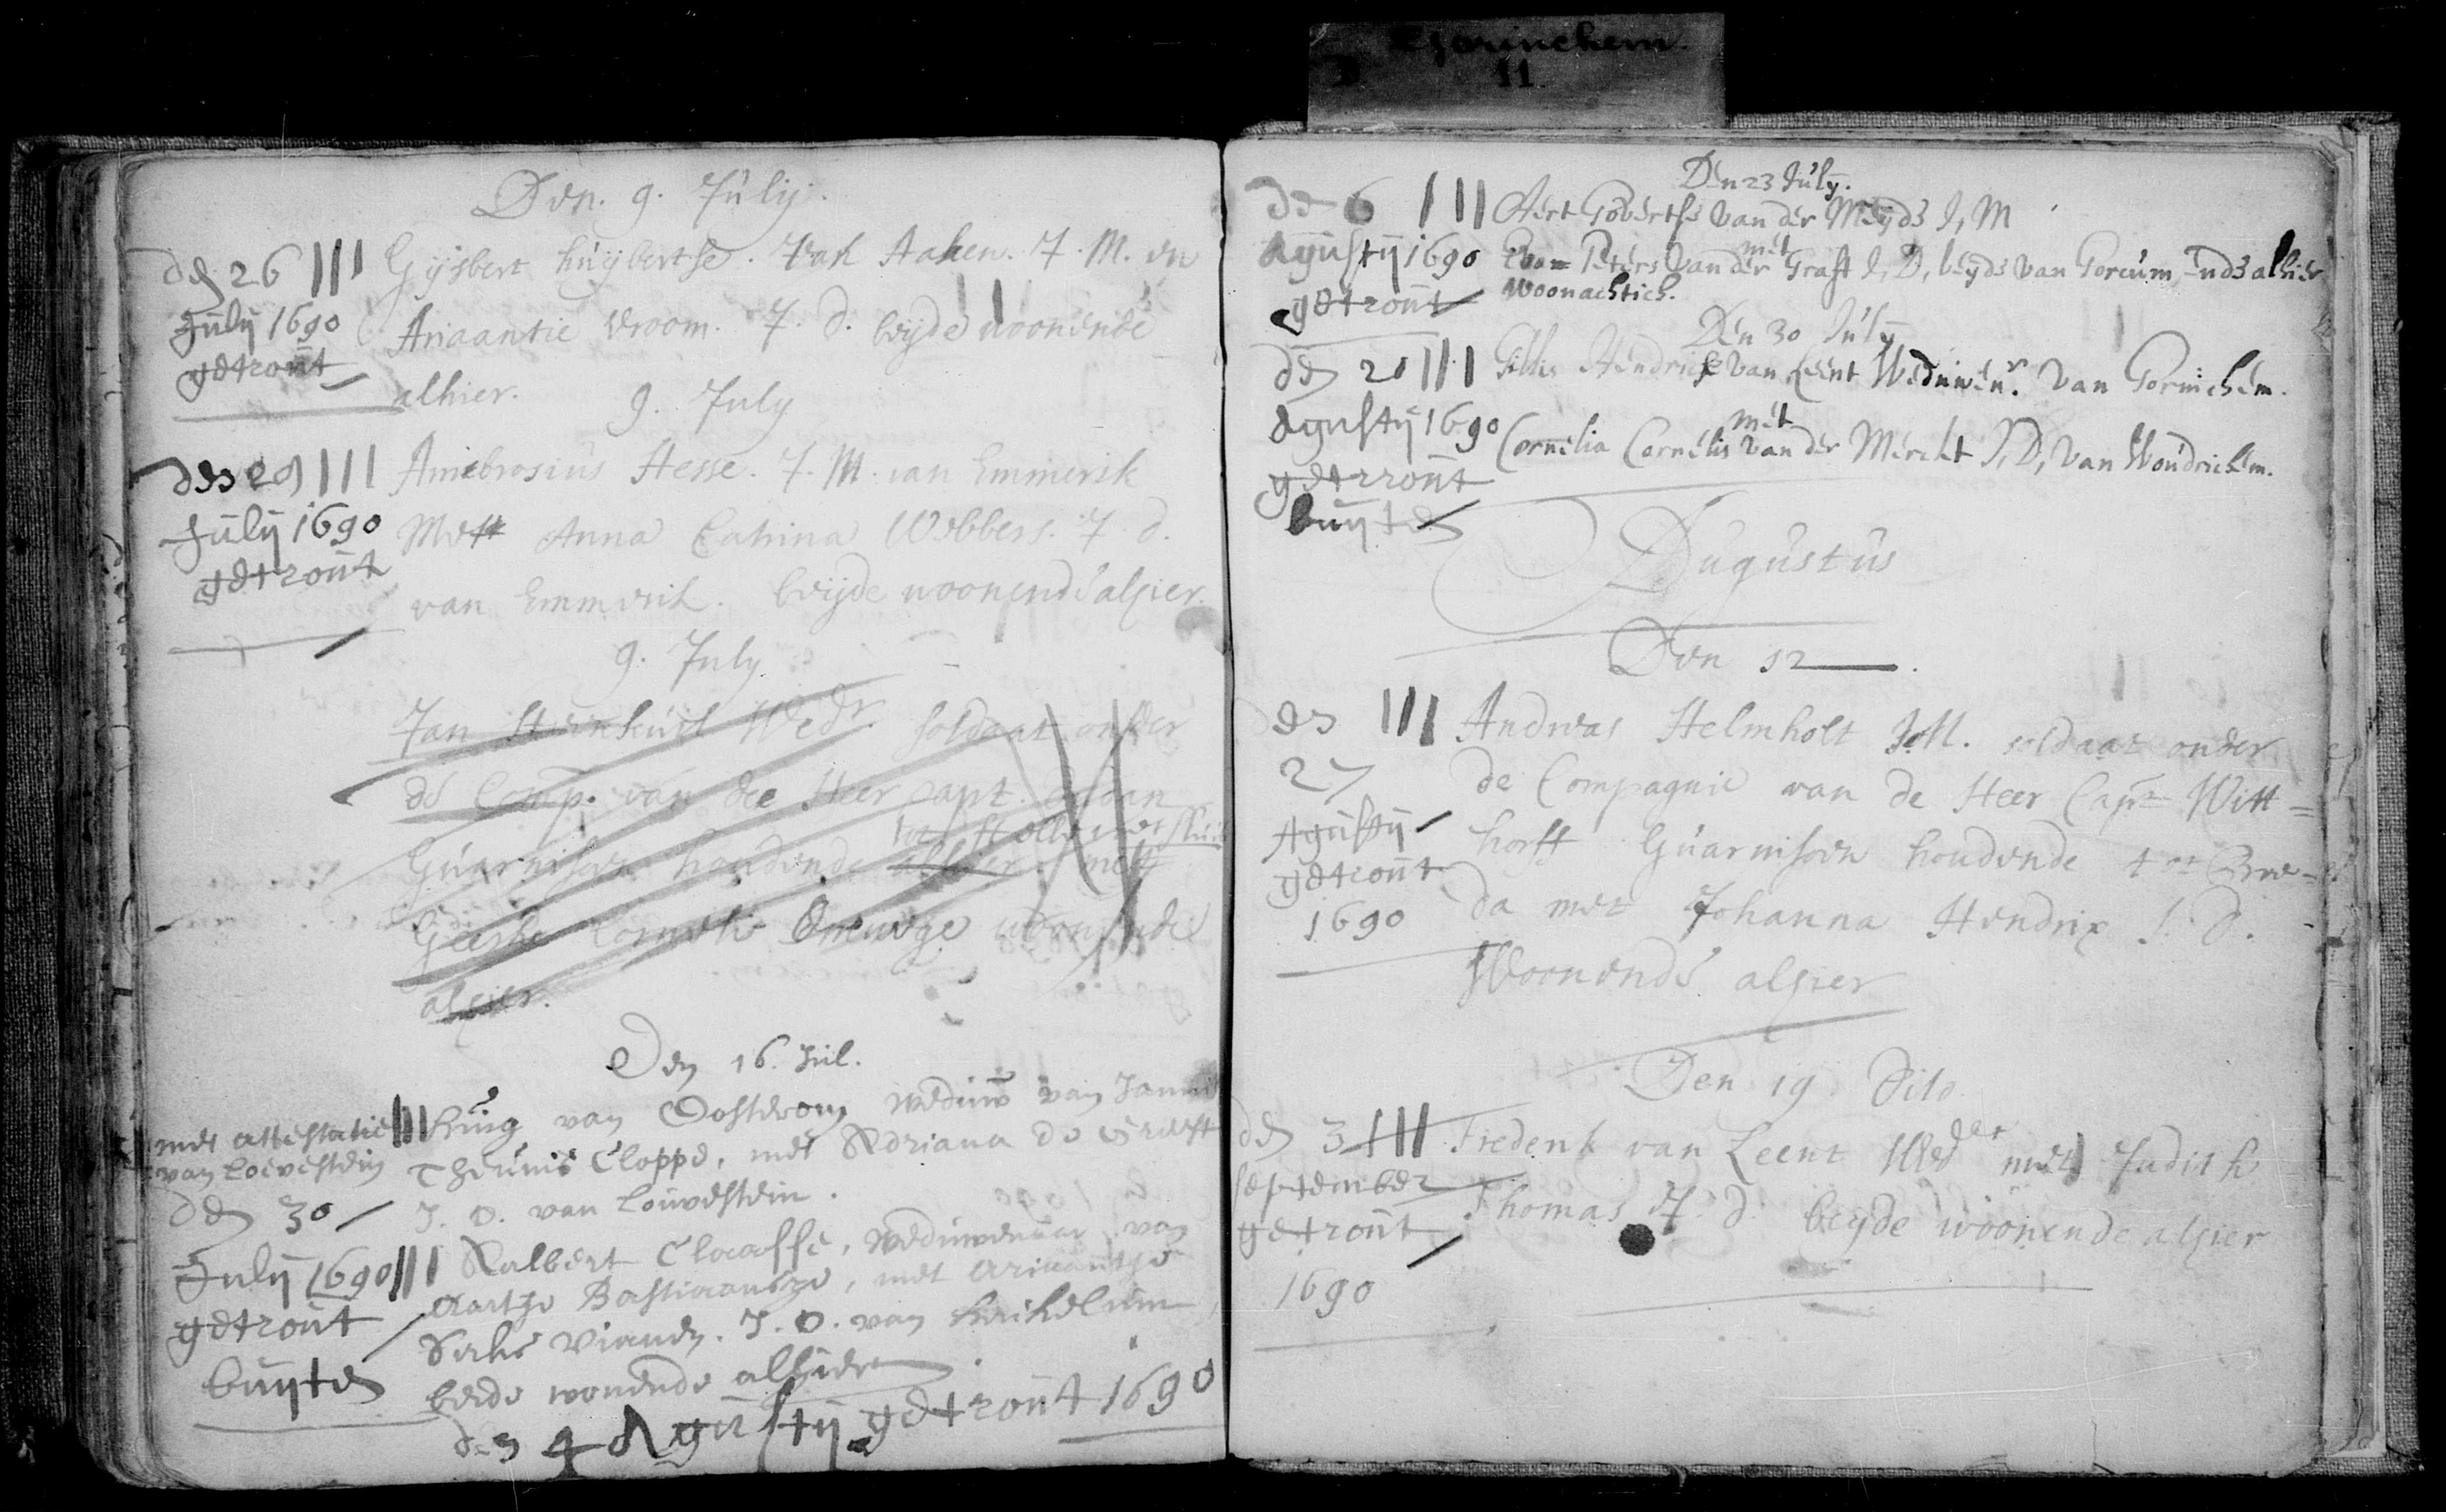 Gorinchem.
11
Den. 9. Julij.
den 26 III
Julij 1690
getrout
Gijsbert huijbertse. Van Aaken. J. M. en
Ariaantie Vroom. J. d. beijde woonende
alhier.
9. July
den 29 III
Julij 1690
getrout
Ambrosius Hesse. J. M. van Emmerik
Mett Anna Catrina Webbers. J. d.
van Emmerik. beijde woonende alhier.
9. July
Jan Wedr. soldaat onder
de Comp. van dee Heer capt.
Guarnisoen houdende alhier mett
Geeske Cornelis woonende
alhier.
Den 16. Jul.
met attestatie
van Loevestein
den 30
July 1690
getrout
buyten
III Huig van Oosterom weduw van Janni
Theunis Cloppe, met Adriana de
J. D. van Louvestein.
III Aalbert Claasse, weduwenaar van
Aartje Bastiaansze, met Ariaantje
J. D. van
beede wonende alhier
den 4 Agustij getrout 1690
Den 23 July.
de 6 III
Agustij 1690
getrout
Aert Govertse van der Meyde J, M
met
Eva Peters van der Graft J, D, beyde van Gorcum, ende alhier
Woonachtich.
Den 30 July
den 20 III
Agustij 1690
getrrout
buyten
Gillis Hendrickse van Leent Weduwenr. van Gorinchem.
met
Cornelia Cornelis van der Merckt J, D, van Woudrichem.
Augustus
Den 12
den III
27
Agustij
getrout
1690
Andreas Helmholt J M. soldaat onder
de Compagnie van de Heer Capt Witt=
horst Guarnisoen houdende tot Bre=
da met Johanna Hendrix J. D.
Woonende alhier
Den 19 Dito
den 3 III
september
getrout
1690
Frederik van Leent Weder met Judith
Thomas J. d. beyde woonende alhier